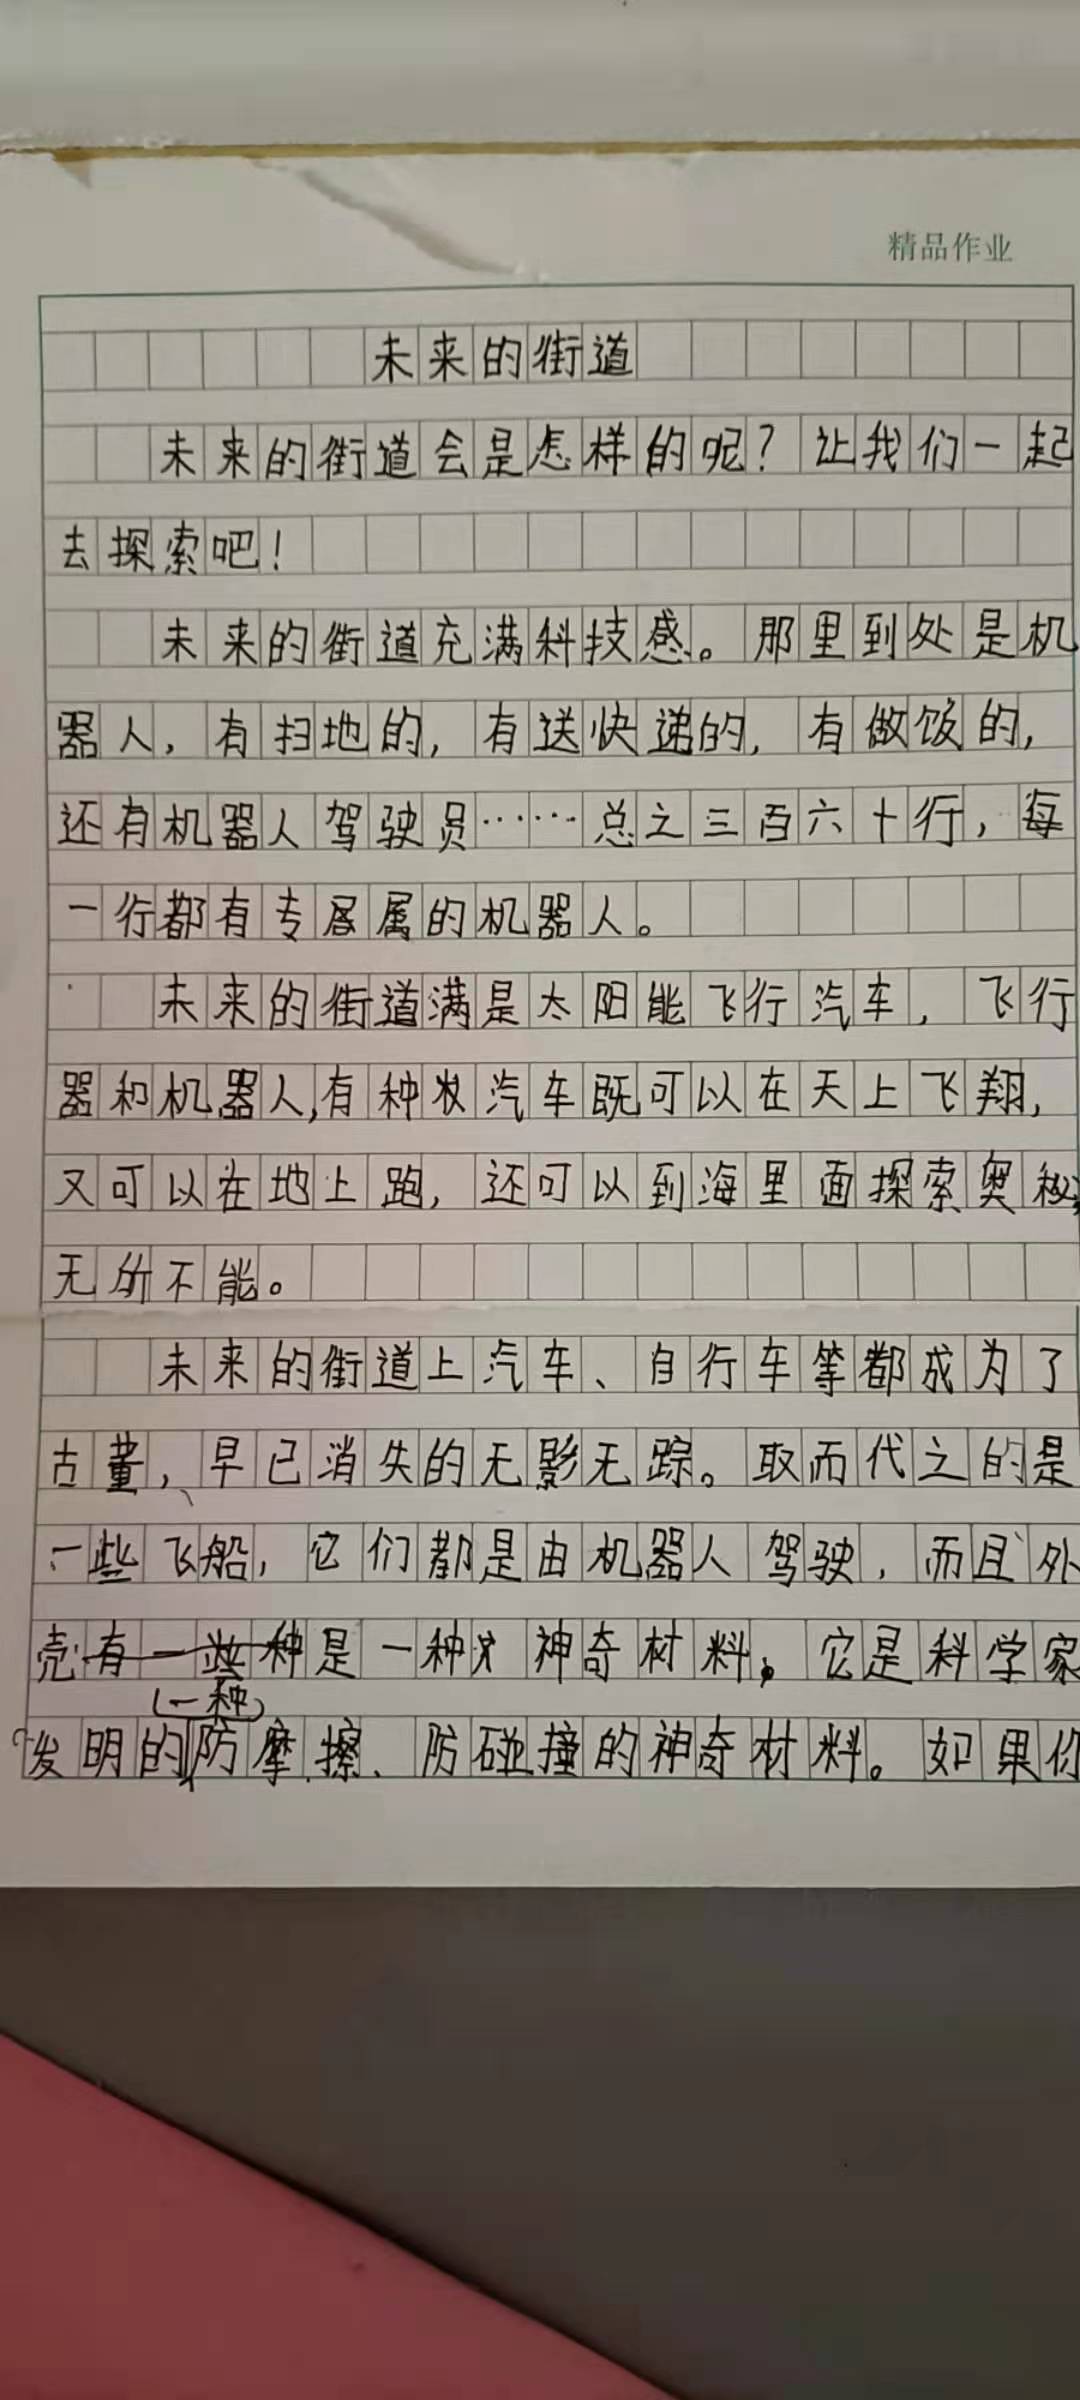 精品作业
未来的街道
未来的街道会是怎样的呢？让我们一起
去探索吧！
未来的街道充满科技感。那里到处是机
器人，有扫地的，有送快递的，有做饭的，
还有机器人驾驶员……总之三百六十行，每
一行都有专属的机器人。
未来的街道满是太阳能飞行汽车，飞行
器和机器人，有种汽车既可以在天上飞翔，
又可以在地上跑，还可以到海里面探索奥秘，
无所不能。
未来的街道上汽车、自行车等都成为了
古董，早已消失的无影无踪。取而代之的是
一些飞船，它们都是由机器人驾驶，而且外
壳是一种神奇材料。它是科学家
发明的一种防摩擦、防碰撞的神奇材料。如果你